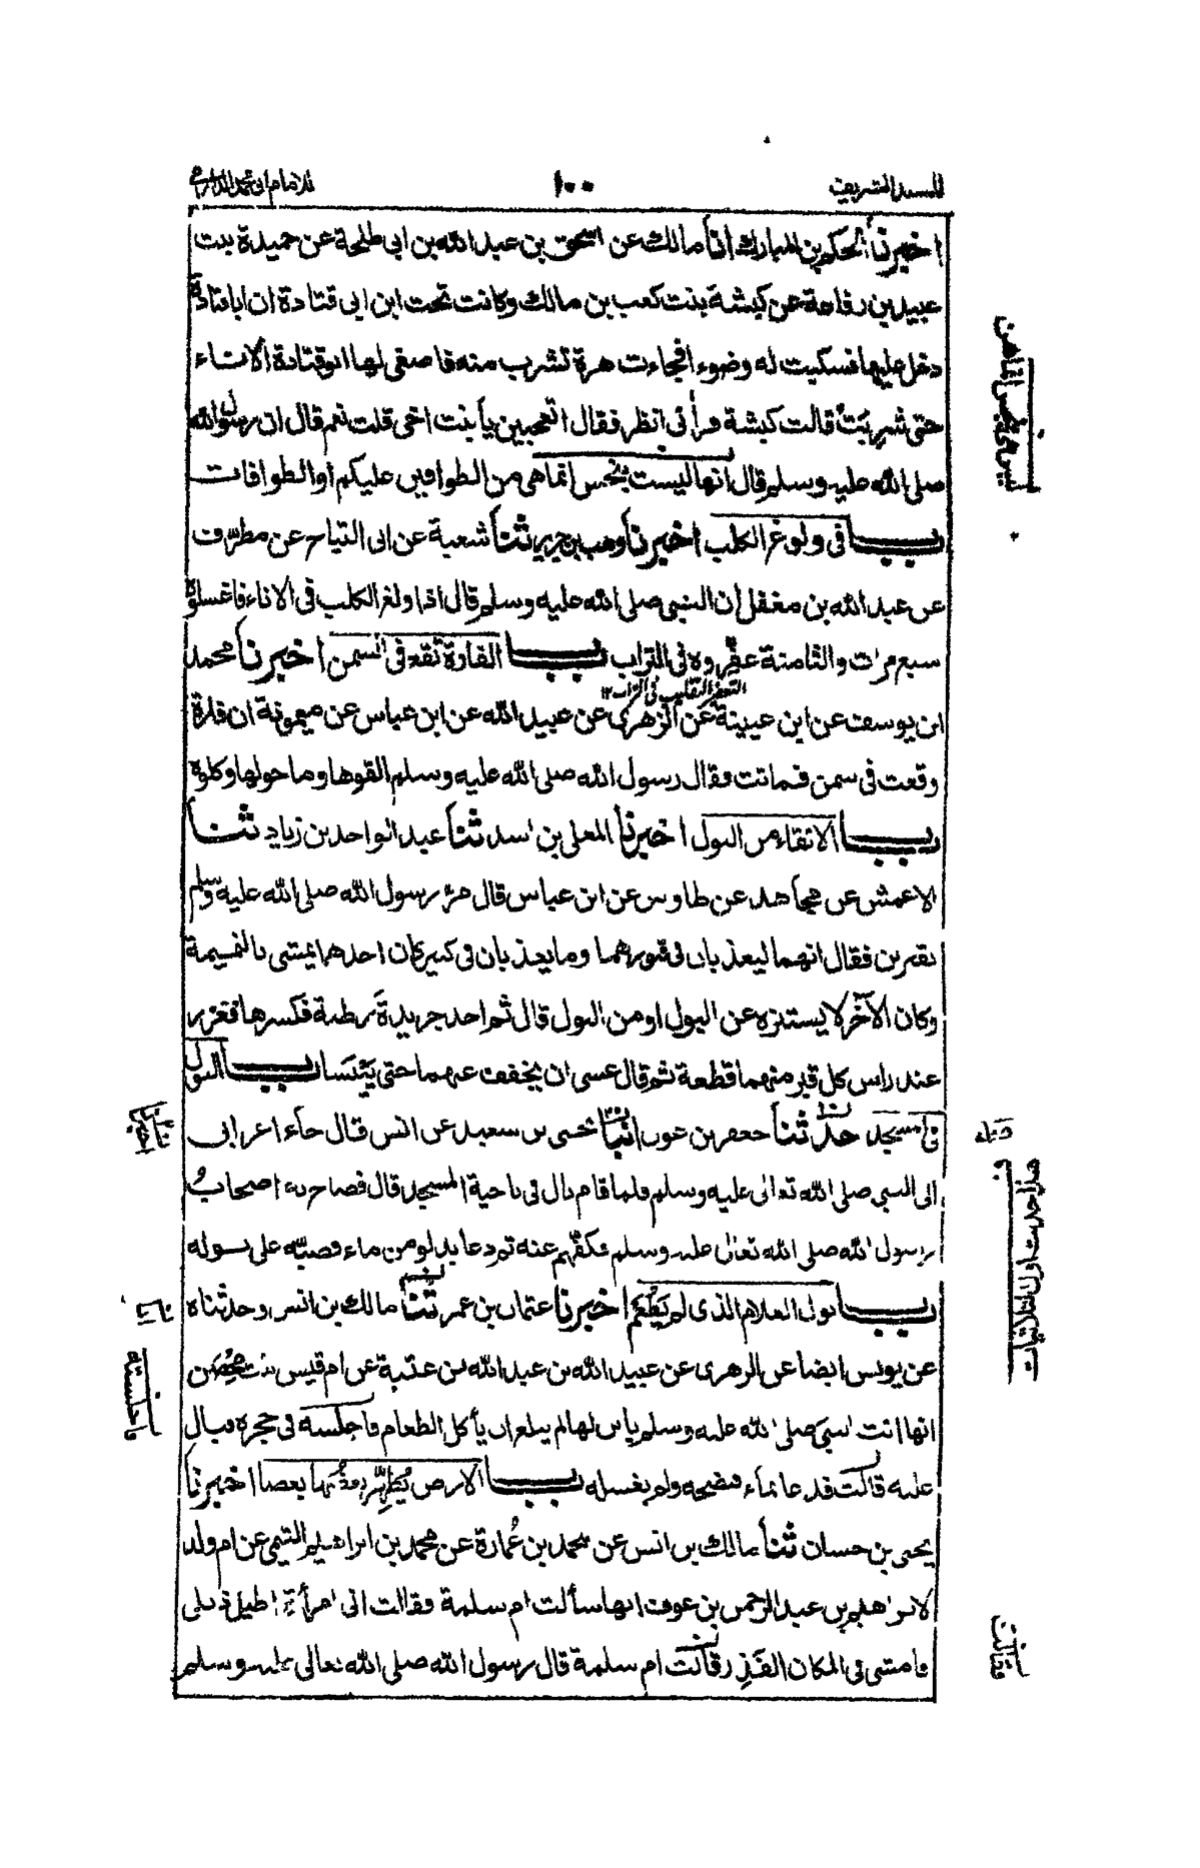 للمسند الشريف
١٠٠
للامام ابى محمد الدارمى
اخبرنا الحكم بن المبارك انا مالك عن اسحق بن عبد الله بن ابى طلحة عن حميدة بنت
عبيد بن رفاعة عن كبشة بنت كعب بن مالك وكانت تحت ابن ابى قتادة ان ابا قتادة
دخل عليها فسكبت له وضوءا فجاءت هرة تشرب منه فاصغى لها ابو قتادة الاناء
حتى شربت قالت كبشة فرأنى انظر فقال اتعجبين يا بنت اخى قلت نعم قال ان رسول الله
صلى الله عليه وسلم قال انها ليست بنجس انما هى من الطوافين عليكم او الطوافات
باب فى ولوغ الكلب اخبرنا وهب بن جرير ثنا شعبة عن ابى التياح عن مطرّف
عن عبد الله بن مغفل ان النبى صلى الله عليه وسلم قال اذا ولغ الكلب فى الاناء فاغسلوه
سبع مرات والثامنة عفّروه فى التراب باب الفارة تقع فى السمن اخبرنا محمد
التعفير التقليب فى التراب ١٢
ابن يوسف عن ابن عيينة عن الزهرى عن عبيد الله عن ابن عباس عن ميمونة ان فارة
وقعت فى سمن فماتت فقال رسول الله صلى الله عليه وسلم القوها وما حولها وكلوه
باب الاتقاء من البول اخبرنا المعلى بن اسد ثنا عبد الواحد بن زياد ثنا
الاعمش عن مجاهد عن طاوس عن ابن عباس قال مرّ رسول الله صلى الله عليه وسلم
بقبرين فقال انهما ليعذبان فى قبورهما وما يعذبان فى كبير كان احدهما يمشى بالنميمة
وكان الآخر لا يستنزه عن البول او من البول قال ثم اخذ جريدة رطبة فكسرها فغرز
عند راس كل قبر منهما قطعة ثم قال عسى ان يخفف عنهما حتى يَيْبَسَا باب البول
فى المسجد حدثنا جعفر بن عون انبانا يحيى بن سعيد عن انس قال جاء اعرابى
الى النبى صلى الله تعالى عليه وسلم فلما قام بال فى ناحية المسجد قال فصاح به اصحابُ
رسول الله صلى الله تعالى عليه وسلم فكفّهم عنه ثم دعا بدلو من ماء فصبّه على بوله
باب بول الغلام الذى لم يَطْعَم اخبرنا عثمان بن عمر ثنا مالك بن انس وحدثناه
عن يونس ايضا عن الزهرى عن عبيد الله بن عبد الله بن عتبة عن ام قيس بنت محصن
انها اتت النبى صلى الله عليه وسلم بابن لها لم يبلغ ان يأكل الطعام فاجلسه فى حجره فبال
عليه قالت فدعا بماء فنضحه ولم يغسله باب الارض يُطهّر بعضُها بعضا اخبرنا
يحيى بن حسان ثنا مالك بن انس عن محمد بن عُمارة عن محمد بن ابراهيم التيمى عن ام ولد
لابراهيم بن عبد الرحمن بن عوف انها سألت ام سلمة فقالت انى امرأة اطيل ذيلى
فامشى فى المكان القَذِر وقالت ام سلمة قال رسول الله صلى الله تعالى عليه وسلم
هذا حديث اول الثلاثيات
فاجلسته
فقالت